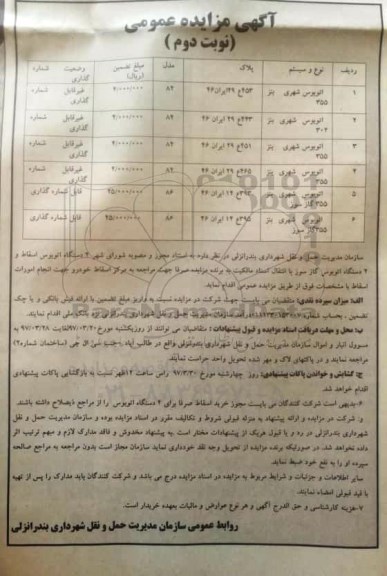 آگهی مزایده عمومی
(نوبت دوم)
ردیف نوع و سیستم پلاک مدل مبلغ تضمین (ریال) وضعیت شماره گذاری
۱ اتوبوس شهری بنز ۳۵۵ ۴۵۳ع ۲۹ ایران ۴۶ ۸۲ ۴/۰۰۰/۰۰۰ غیرقابل شماره گذاری
۲ اتوبوس شهری بنز ۳۰۲ ۴۴۳ع ۲۹ ایران ۴۶ ۸۴ ۴/۰۰۰/۰۰۰ غیرقابل شماره گذاری
۳ اتوبوس شهری بنز ۳۵۵ ۴۵۱ع ۲۹ ایران ۴۶ ۸۴ ۴/۰۰۰/۰۰۰ غیرقابل شماره گذاری
۴ اتوبوس شهری بنز ۳۵۵ ۴۶۵ع ۲۹ ایران ۴۶ ۸۲ ۴/۰۰۰/۰۰۰ غیرقابل شماره گذاری
۵ اتوبوس شهری بنز ۳۵۵ گاز سوز ۳۹۳ع ۱۲ ایران ۴۶ ۸۶ ۲۵/۰۰۰/۰۰۰ قابل شماره گذاری
۶ اتوبوس شهری بنز ۳۵۵ گاز سوز ۳۹۵ع ۱۲ ایران ۴۶ ۸۶ ۲۵/۰۰۰/۰۰۰ قابل شماره گذاری
سازمان مدیریت حمل و نقل شهرداری بندرانزلی در نظر دارد به استناد مجوز و مصوبه شورای شهر ۴ دستگاه اتوبوس اسقاط و
۲ دستگاه اتوبوس گاز سوز با انتقال اسناد مالکیت به برنده مزایده صرفا جهت مراجعه به مراکز اسقاط خودرو جهت انجام امورات
اسقاط با مشخصات فوق از طریق مزایده عمومی اقدام نماید.
الف: میزان سپرده نقدی: متقاضیان می بایست جهت شرکت در مزایده نسبت به واریز مبلغ تضمین با ارائه فیش بانکی و یا چک
تضمین، بحساب شماره سازمان مدیریت حمل و نقل شهرداری بندرانزلی نزد بانک ملی اقدام نمایند.
ب: محل و مهلت دریافت اسناد مزایده و قبول پیشنهادات: متقاضیان می توانند از روز یکشنبه مورخ ۹۷/۰۳/۲۰ لغایت ۹۷/۰۳/۲۸ به
مسوول انبار و اموال سازمان مدیریت حمل و نقل شهرداری بندرانزلی واقع در طالب آباد (ساختمان شماره ۲)
مراجعه نمایند و در پاکتهای لاک و مهر شده تحویل واحد حراست نمایند.
ج: گشایش و خواندن پاکات پیشنهادی: روز چهارشنبه مورخ ۹۷/۳/۳۰ راس ساعت ۱۲ ظهر نسبت به بازگشایی پاکات پیشنهادی
اقدام خواهد شد.
۶- بدیهی است شرکت کنندگان می بایست مجوز خرید اسقاط صرفا برای ۴ دستگاه اتوبوس را از مراجع ذیصلاح داشته باشند.
و: شرکت در مزایده و ارائه پیشنهاد به منزله قبولی شروط و تکالیف مقرر در اسناد مزایده بوده و سازمان مدیریت حمل و نقل
شهرداری بندرانزلی در رد و یا قبول هریک از پیشنهادات مختار است به پیشنهاد مخدوش و فاقد مدارک لازم و مبهم ترتیب اثر
داده نخواهد شد. در صورتیکه برنده مزایده از تحویل وجه نقد خودداری نماید سازمان مجاز است بدون مراجعه به مراجع صالحه
سپرده او را به نفع خود ضبط نماید.
سایر اطلاعات و جزئیات و شرایط مربوط به مزایده در اسناد مزایده درج می باشد و شرکت کنندگان باید مدارک را پس از تهیه
با قید قبولی امضاء نمایند.
۷- هزینه کارشناسی و حق الدرج آگهی و هر نوع عوارض و مالیات بعهده خریدار است.
روابط عمومی سازمان مدیریت حمل و نقل شهرداری بندرانزلی